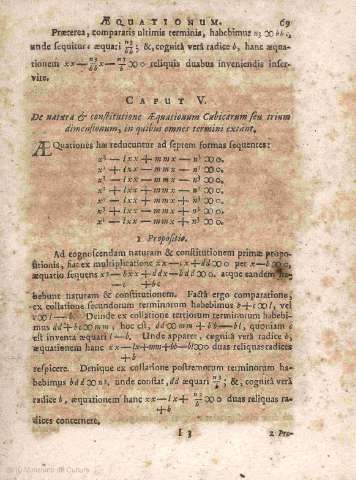 ÆQUATIONUM. 69
Præterea, comparatis ultimis terminis, habebimus n3 ∞ bbc,
unde sequitur c æquari n3/bb; &, cognitâ verâ radice b, hanc æqua-
tionem xx — n3/bb x — n3/b ∞ 0 reliquis duabus inveniendis inser-
vire.
CAPUT V.
De natura & constitutione Æquationum Cubicarum seu trium
dimensionum, in quibus omnes termini extant.
ÆQuationes hæ reducuntur ad septem formas sequentes:
x3 — lxx + mmx — n3 ∞ 0.
x3 — lxx — mmx — n3 ∞ 0.
x3 — lxx
x3
x3
x3
x3
1 Propositio.
Ad cognoscendam naturam & constitutionem primæ propo-
sitionis, hac ex multiplicatione xx — cx + dd ∞ 0 per x — b ∞ 0,
æquatio sequens x3 — bxx + ddx — bdd ∞ 0. atque eandem ha-
— c + bc
bebunt naturam & constitutionem. Factâ ergo comparatione,
ex collatione secundorum terminorum habebimus b + c ∞ l, vel
c ∞ l — b. Deinde ex collatione tertiorum terminorum habebi-
mus dd + bc ∞ mm, hoc est, dd ∞ mm + bb — bl, quoniam c
est inventa æquari l — b. Unde apparet, cognitâ verâ radice b,
æquationem hanc xx — lx + mm + bb — bl ∞ 0 duas reliquas radices
+ b
respicere. Denique ex collatione postremorum terminorum ha-
bebimus bdd ∞ n3, unde constat, dd æquari n3/b; &, cognitâ verâ
radice b, æquationem hanc xx — lx + n3/b ∞ 0 duas reliquas ra-
+ b
dices concernere.
I 3 2 Pro-
Ministério da Cultura